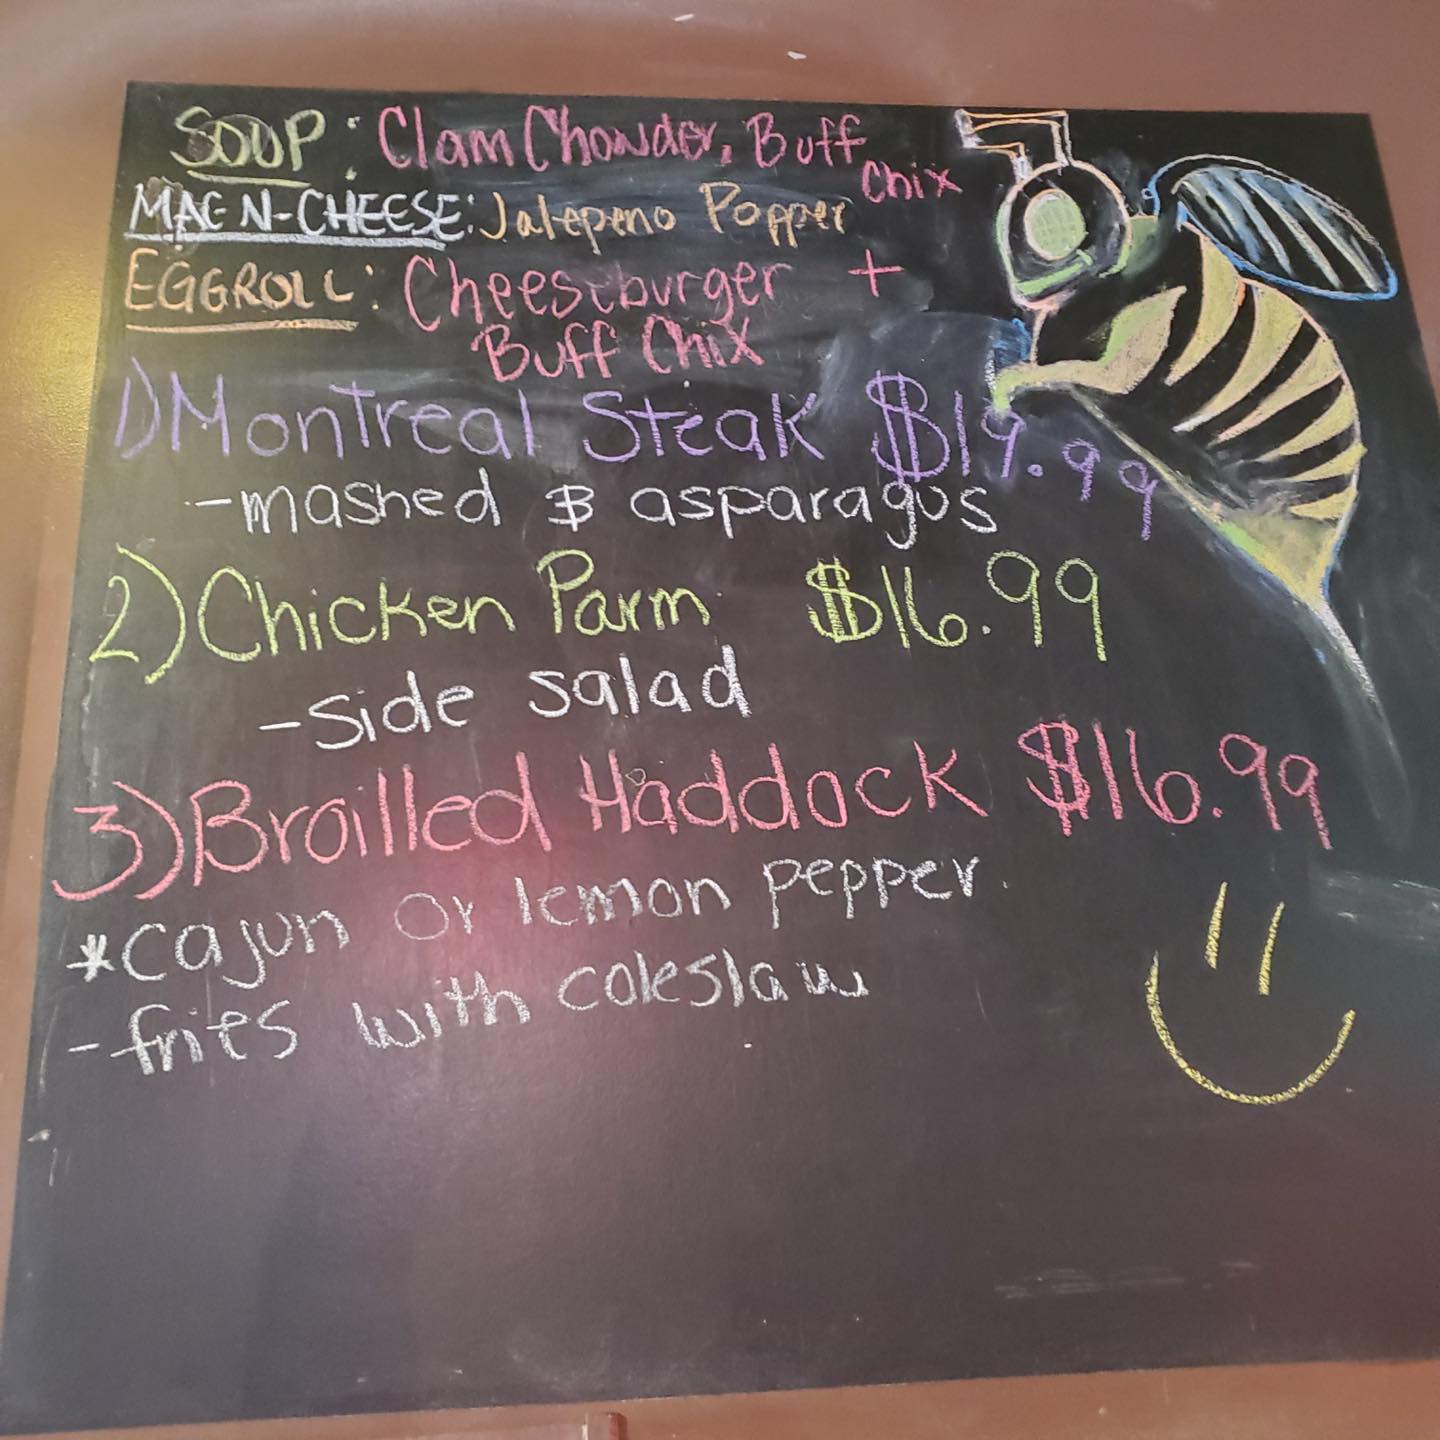 SOUP: Clam Chowder, Buff
Chix
MAC N-CHEESE: Jalepeno Popper
EGGROLL: Cheeseburger +
Buff Chix
1) Montreal Steak $19.99
- mashed & asparagus
2) Chicken Parm $16.99
- side salad
3) Broilled Haddock $16.99
*cajun or lemon pepper
- fries with coleslaw